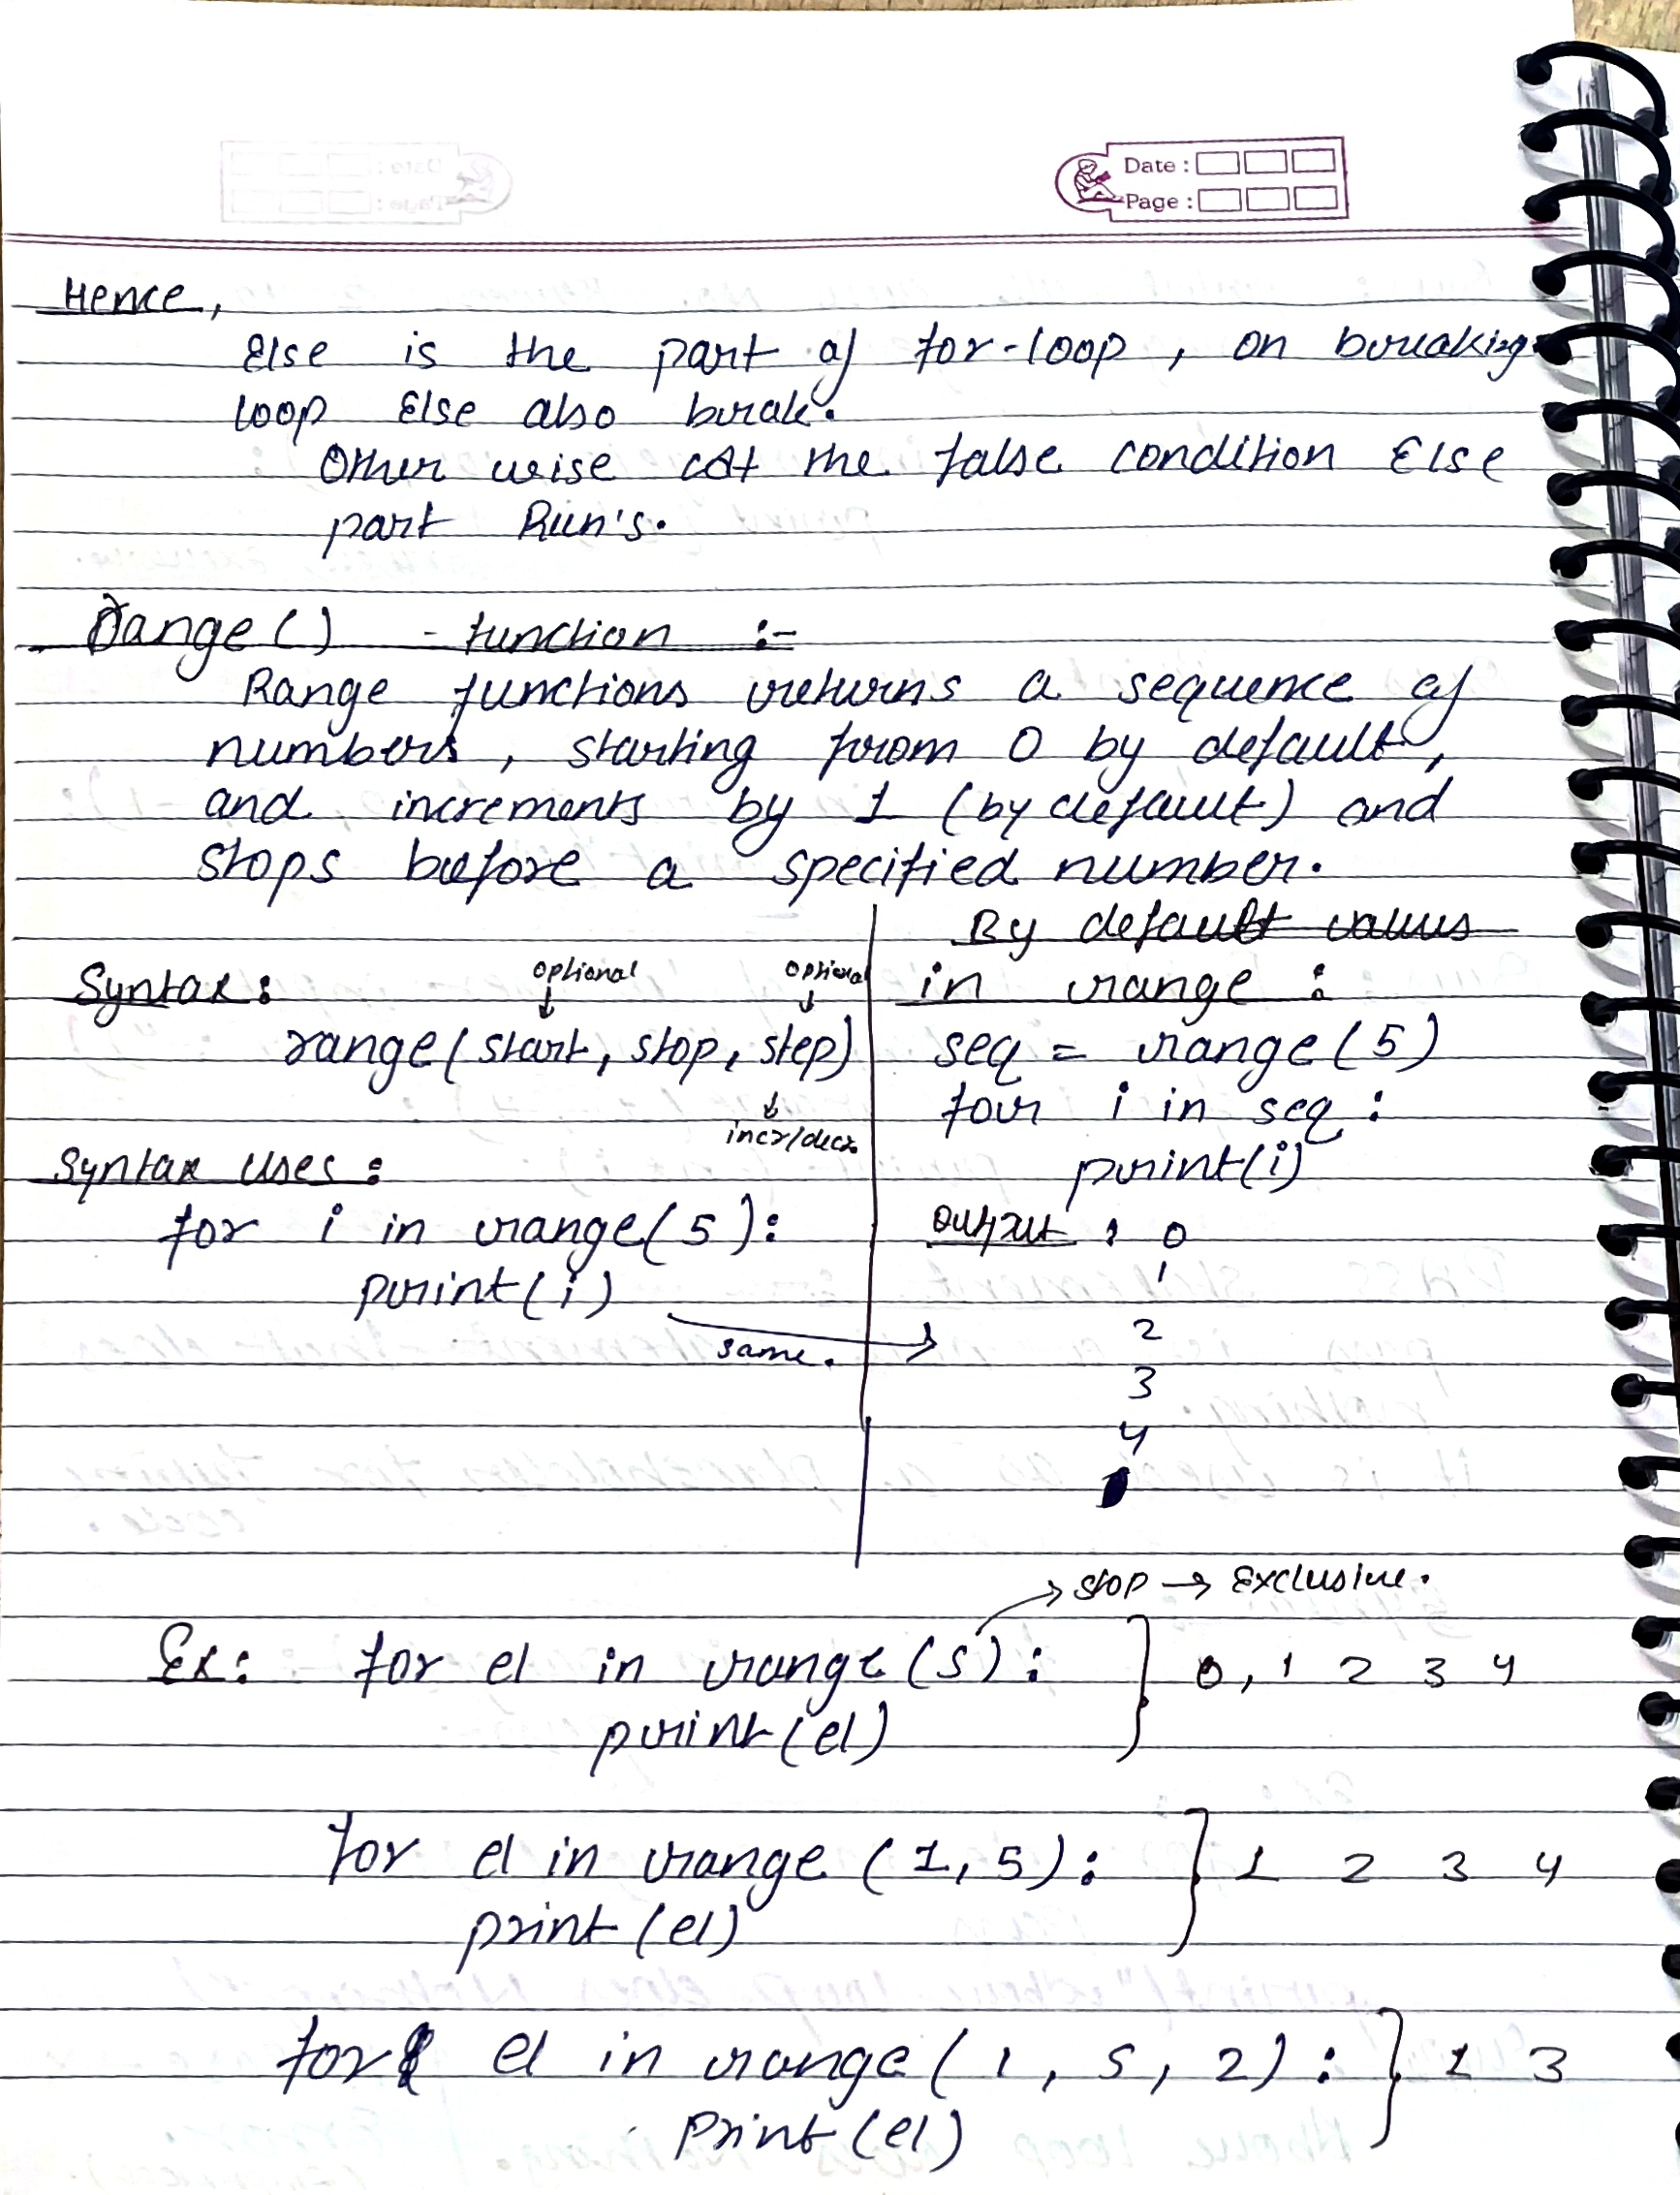 Date :
Page :
Hence,
Else is the part of for-loop, on breaking
loop Else also break.
Other wise at the false condition Else
part Run's.
Range() - function :-
Range functions returns a sequence of
numbers, starting from 0 by default,
and increments by 1 (by default) and
stops before a specified number.
Syntax :
optional
optional
range(start, stop, step)
incr/decr.
Syntax Uses :
for i in range(5):
print(i)
same.
By default values
in range :
seq = range(5)
for i in seq :
print(i)
output : 0
1
2
3
4
stop → Exclusive.
Ex: for el in range(5): } 0, 1 2 3 4
print(el)
for el in range (1,5): } 1 2 3 4
print(el)
for el in range(1, 5, 2): } 1 3
Print(el)